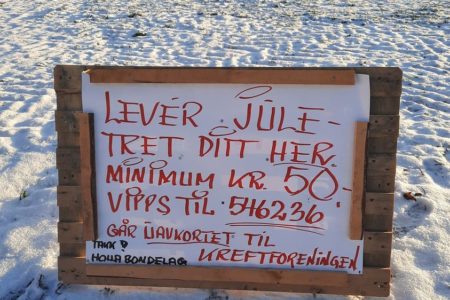 LEVÉR JULE-
TRET DITT HER.
MINIMUM KR. 50,-
VIPPS TIL 546236
GÅR UAVKORTET TIL
KREFTFORENINGEN
TAKK!
HOLLA BONDELAG